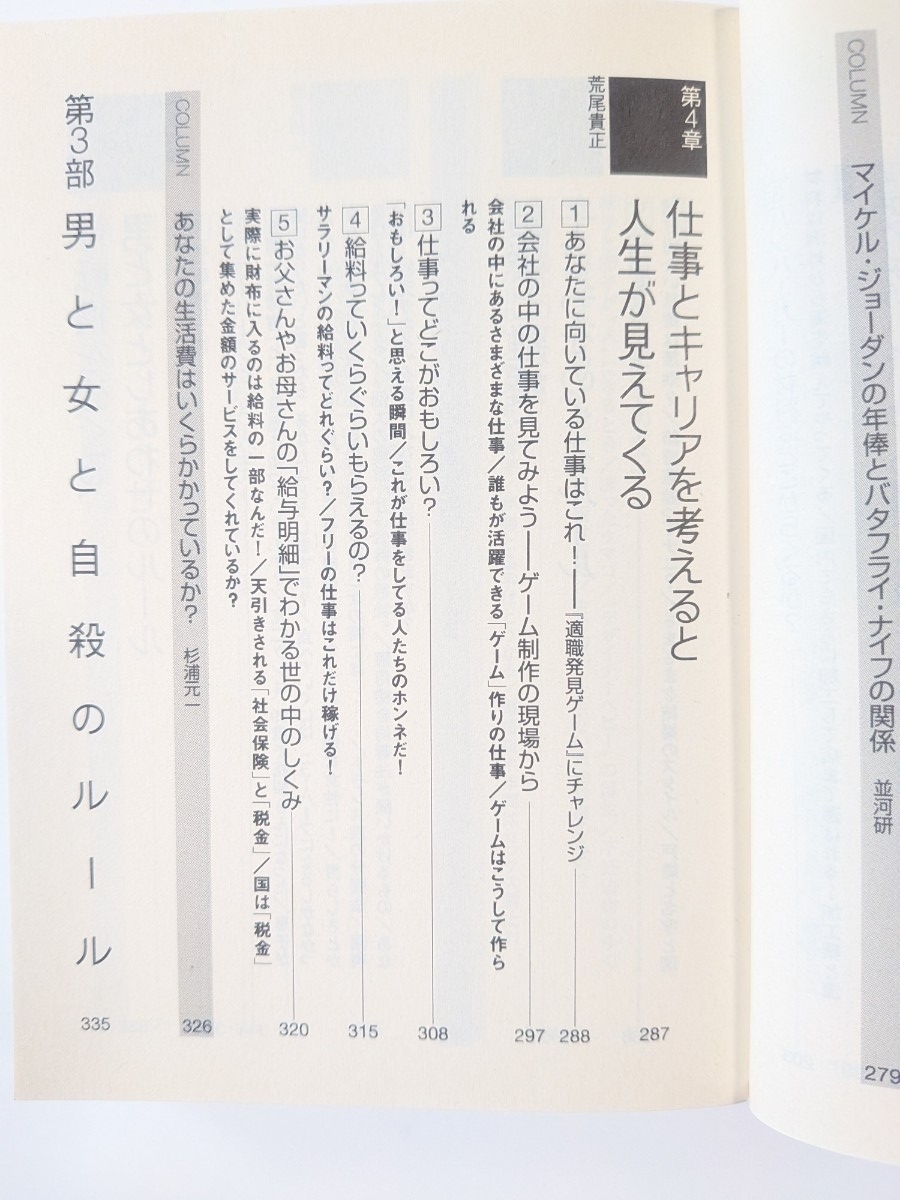 COLUMN マイケル・ジョーダンの年俸とバタフライ・ナイフの関係 並河研 279
第4章
荒尾貴正
仕事とキャリアを考えると
人生が見えてくる 287
1 あなたに向いている仕事はこれ!――『適職発見ゲーム』にチャレンジ 288
2 会社の中の仕事を見てみよう――ゲーム制作の現場から 297
会社の中にあるさまざまな仕事/誰もが活躍できる「ゲーム」作りの仕事/ゲームはこうして作ら
れる
3 仕事ってどこがおもしろい? 308
「おもしろい!」と思える瞬間/これが仕事をしてる人たちのホンネだ!
4 給料っていくらぐらいもらえるの? 315
サラリーマンの給料ってどれぐらい?/フリーの仕事はこれだけ稼げる!
5 お父さんやお母さんの「給与明細」でわかる世の中のしくみ 320
実際に財布に入るのは給料の一部なんだ!/天引きされる「社会保険」と「税金」/国は「税金」
として集めた金額のサービスをしてくれているか?
COLUMN あなたの生活費はいくらかかっているか? 杉浦元一 326
第3部 男と女と自殺のルール 335